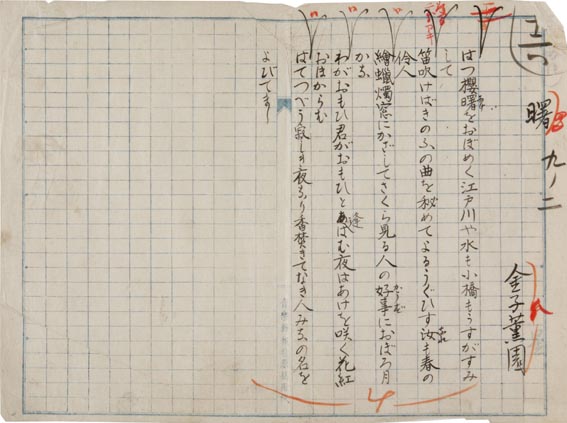 曙 九ノ二
金子薫園
はつ櫻曙をおぼめく江戸川や水も小橋もうすがすみ
して
笛吹けばきのふの曲を秘めてよるうぐひす汝も春の
伶人
繪蠟燭窓にかざしてさくら見る人の好事におぼろ月
かな
わがおもひ君がおもひと逢はむ夜はあけを咲く花紅
おほからむ
はてつべう寂しき夜なり香焚きてなき人みなの名を
よびてまし